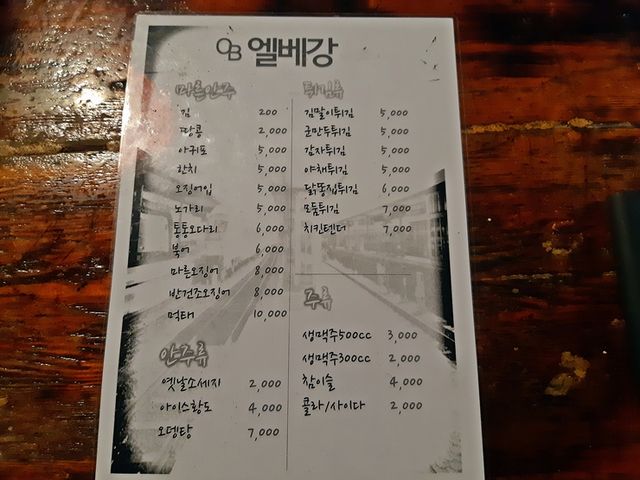 OB 엘베강
마른안주
김 200
땅콩 2,000
아귀포 5,000
한치 5,000
오징어입 5,000
노가리 5,000
통통오다리 6,000
북어 6,000
마른오징어 8,000
반건조오징어 8,000
먹태 10,000
안주류
옛날소세지 2,000
아이스황도 4,000
오뎅탕 7,000
튀김류
김말이튀김 5,000
군만두튀김 5,000
감자튀김 5,000
야채튀김 5,000
닭똥집튀김 6,000
모듬튀김 7,000
치킨텐더 7,000
주류
생맥주500cc 3,000
생맥주300cc 2,000
참이슬 4,000
콜라/사이다 2,000